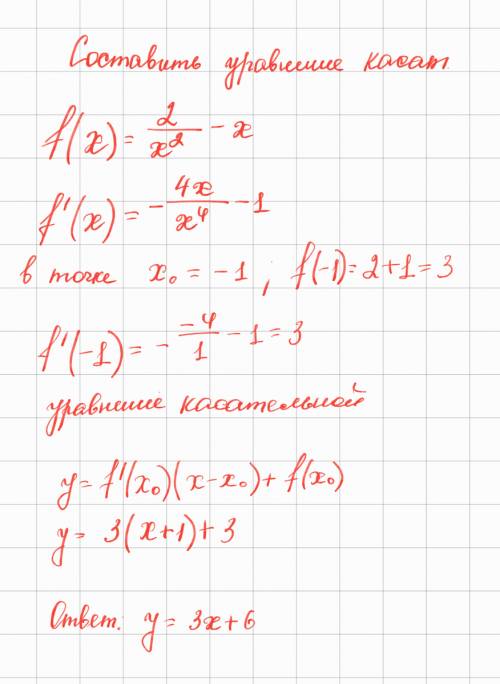 Составить уравнение касат
f(x) = 2/x² - x
f'(x) = - 4x/x⁴ - 1
в точке x₀ = -1 ; f(-1) = 2+1 = 3
f'(-1) = - -4/1 - 1 = 3
уравнение касательной
y = f'(x₀)(x-x₀) + f(x₀)
y = 3(x+1) + 3
Ответ: y = 3x+6